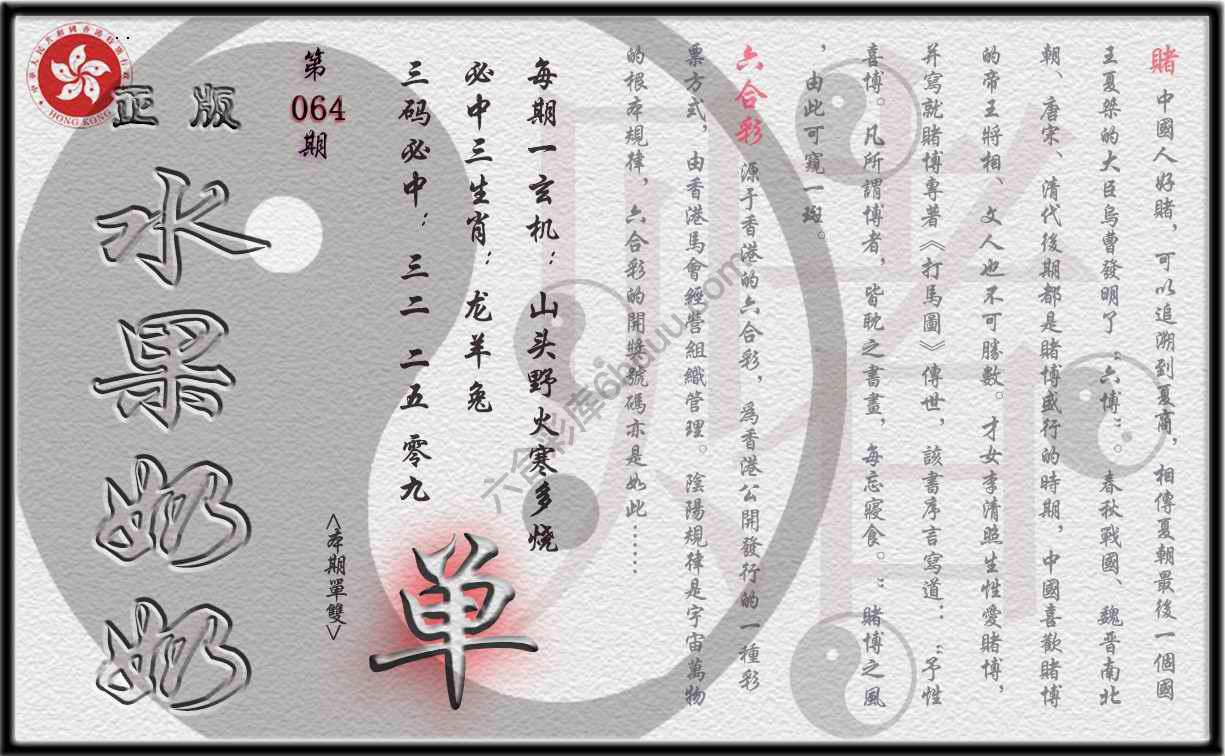 賭 中國人好賭，可以追溯到夏商，相傳夏朝最後一個國
王夏桀的大臣烏曹發明了“六博”。春秋戰國、魏晋南北
朝、唐宋、清代後期都是賭博盛行的時期，中國喜歡賭博
的帝王將相、文人也不可勝數。才女李清照生性愛賭博，
并寫就賭博專著《打馬圖》傳世，該書序言寫道：“予性
喜博。凡所謂博者，皆耽之書畫，每忘寢食。”賭博之風
，由此可窺一斑。
六合彩 源于香港的六合彩，爲香港公開發行的一種彩
票方式，由香港馬會經營組織管理。陰陽規律是宇宙萬物
的根本規律，六合彩的開獎號碼亦是如此……
每期一玄机：山头野火寒多烧
必中三生肖：龙羊兔
三码必中：三二 二五 零九
第
064
期
<本期單雙>
单
正版
水果奶奶
HONG KONG
賭